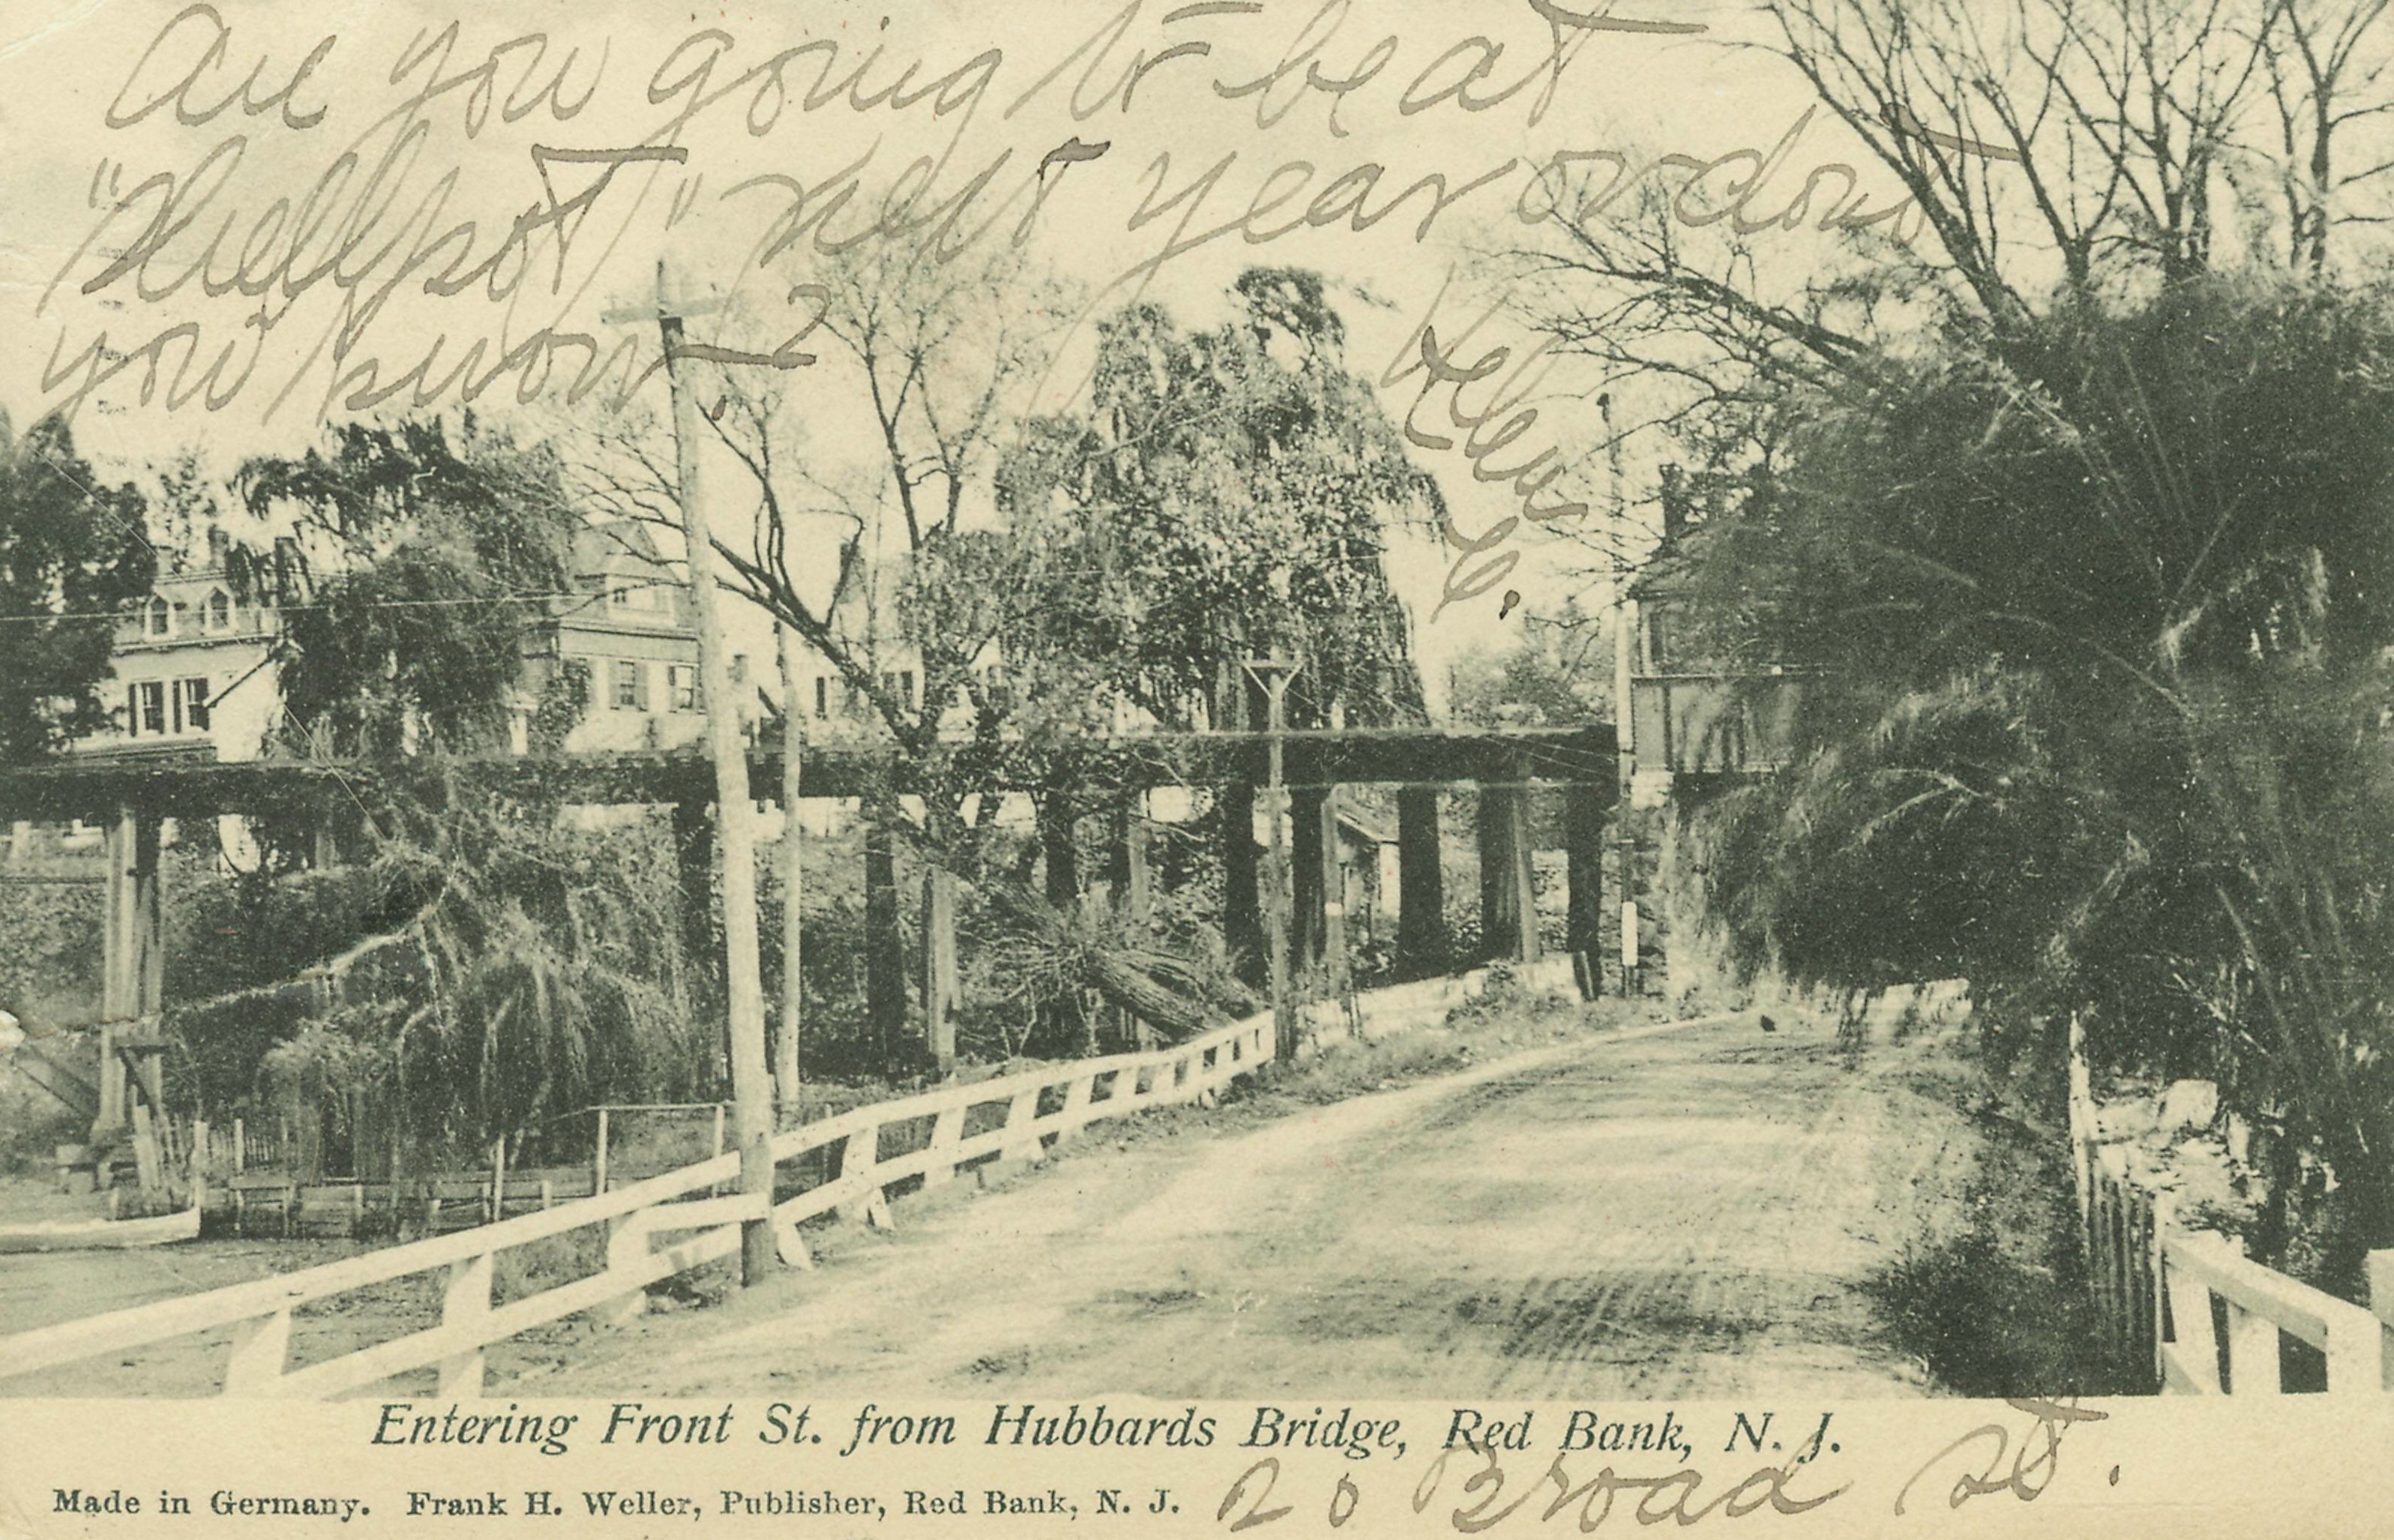 Are you going to be at
"Shellpot" next year or dont
you know?
Helen
C.
Entering Front St. from Hubbards Bridge, Red Bank, N. J.
Made in Germany. Frank H. Weller, Publisher, Red Bank, N. J.
20 Broad St.